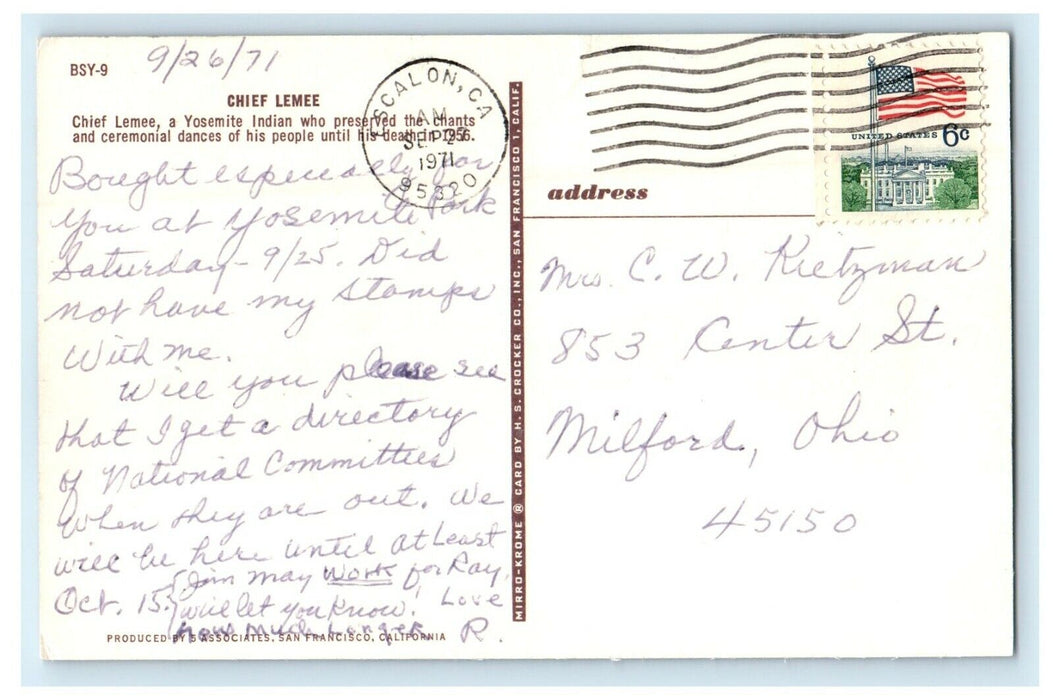 9/26/71
BSY-9
CHIEF LEMEE
Chief Lemee, a Yosemite Indian who preserved the chants
and ceremonial dances of his people until his death in 1956.
Bought especially for
you at Yosemite Park
Saturday - 9/25. Did
not have my stamps
with me.
Will you please see
that I get a directory
of National Committees
when they are out. We
will be here until at least
Oct. 15.
Jim may work for Ray,
will let you know!
how much longer
Love
R.
PRODUCED BY S ASSOCIATES, SAN FRANCISCO, CALIFORNIA
MIRRO-KROME ® CARD BY H. S. CROCKER CO., INC., SAN FRANCISCO 1, CALIF.
ESCALON, CA
AM
SEP
1971
95320
UNITED STATES 6c
address
Mrs. C. W. Kietzman
853 Center St.
Milford, Ohio
45150